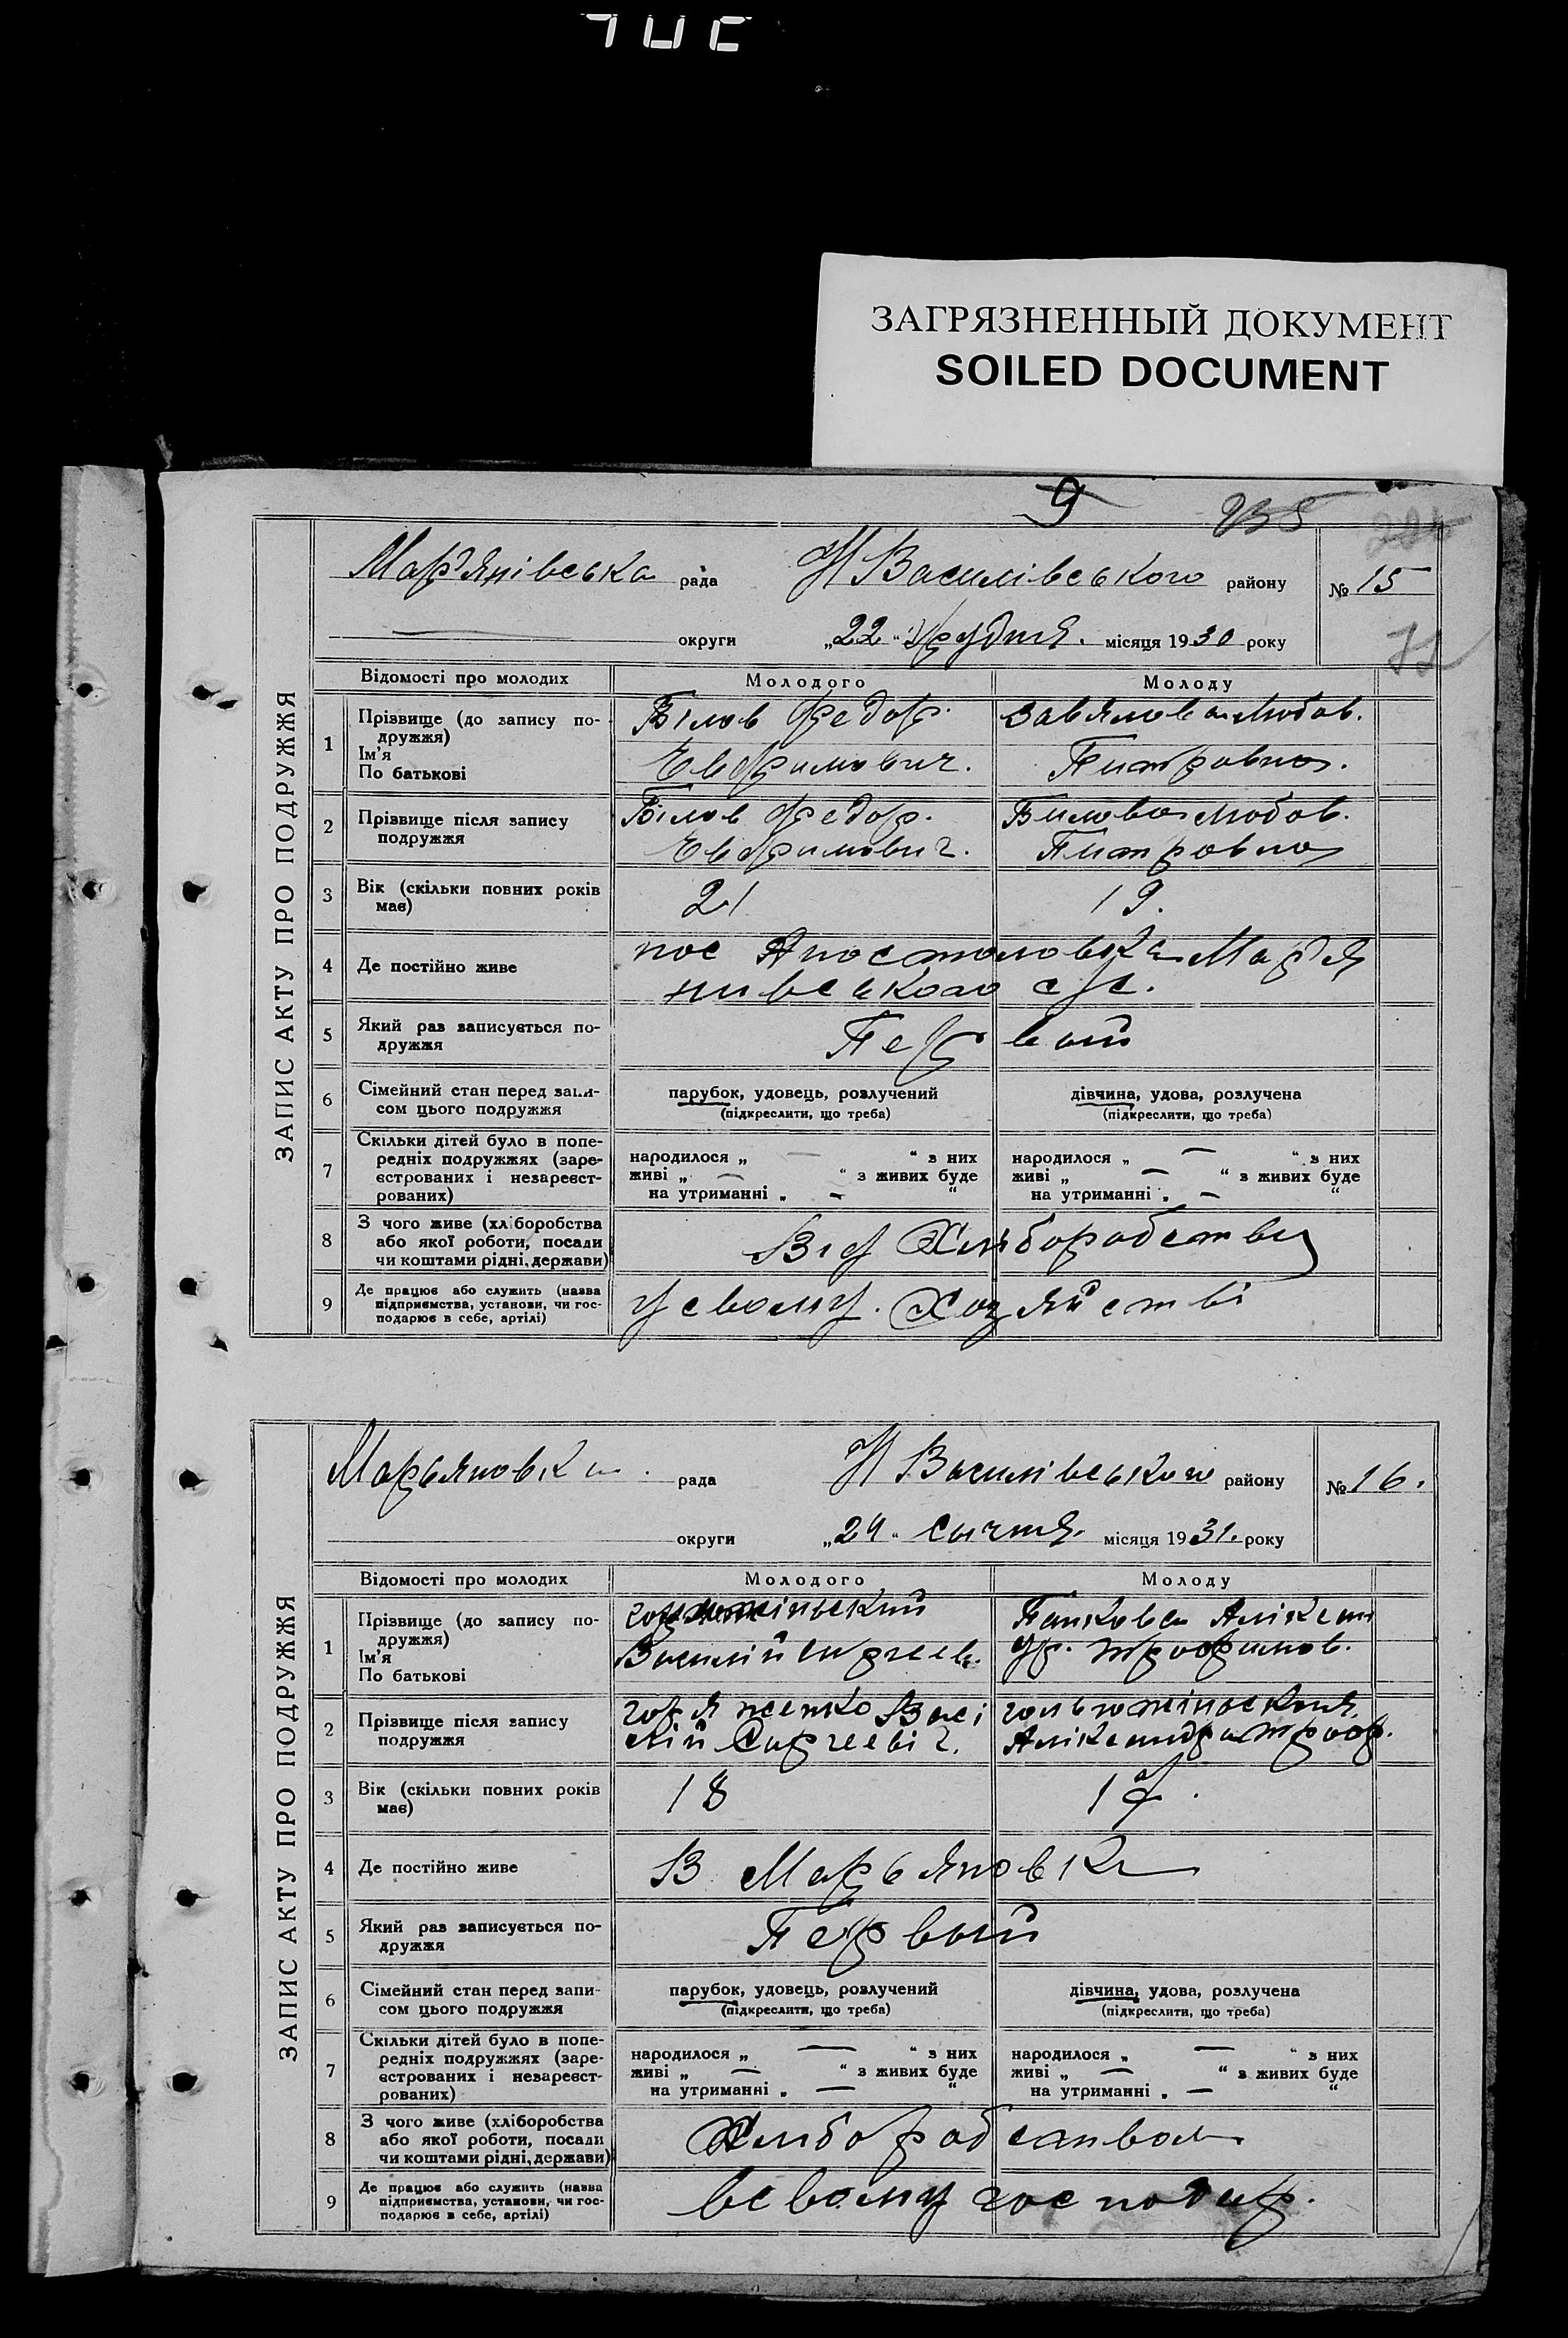 ЗАГРЯЗНЕННЫЙ ДОКУМЕНТ
SOILED DOCUMENT
9 235
ЗАПИС АКТУ ПРО ПОДРУЖЖЯ
Мар'янівська рада Н Василівського району № 15
округи „22“ Грудня. місяця 1930 року
72
Відомості про молодих Молодого Молоду
1 Прізвище (до запису по-
дружжя)
Ім'я
По батькові
Білов Федор.
Евфимович.
Завялова Любов.
Питровна.
2 Прізвище після запису
подружжя
Білов Федор.
Евфимович.
Билова Любов.
Питровна
3 Вік (скільки повних років
має)
21 19.
4 Де постійно живе
пос Апостоловка Мар'я
нивського с/с.
5 Який раз записується по-
дружжя
Первый
6 Сімейний стан перед запи-
сом цього подружжя
парубок, удовець, розлучений
(підкреслити, що треба)
дівчина, удова, розлучена
(підкреслити, що треба)
7 Скільки дітей було в попе-
редніх подружжях (заре-
єстрованих і незареєст-
рованих)
народилося „ — “ з них
живі „ — “ з живих буде
на утриманні „ — “
народилося „ — “ з них
живі „ — “ з живих буде
на утриманні „ — “
8 З чого живе (хліборобства
або якої роботи, посади
чи коштами рідні, держави)
Від Хліборобства
9 Де працює або служить (назва
підприємства, установи, чи гос-
подарює в себе, артілі)
У свому. Хозяйстві
ЗАПИС АКТУ ПРО ПОДРУЖЖЯ
Марьяновка. рада Н Василівського району № 16.
округи „24“ Сычня. місяця 1931. року
Відомості про молодих Молодого Молоду
1 Прізвище (до запису по-
дружжя)
Ім'я
По батькові
Василий Сиргеев.
Панкова Аліксан
др. Трофимов.
2 Прізвище після запису
подружжя
Васі
лій Сиргеевіч.
Аліксандра Троф.
3 Вік (скільки повних років
має)
18 17.
4 Де постійно живе
В Марьяновк
5 Який раз записується по-
дружжя
Первый
6 Сімейний стан перед запи-
сом цього подружжя
парубок, удовець, розлучений
(підкреслити, що треба)
дівчина, удова, розлучена
(підкреслити, що треба)
7 Скільки дітей було в попе-
редніх подружжях (заре-
єстрованих і незареєст-
рованих)
народилося „ — “ з них
живі „ — “ з живих буде
на утриманні „ — “
народилося „ — “ з них
живі „ — “ з живих буде
на утриманні „ — “
8 З чого живе (хліборобства
або якої роботи, посади
чи коштами рідні, держави)
Хлиборобством
9 Де працює або служить (назва
підприємства, установи, чи гос-
подарює в себе, артілі)
всвому господар.